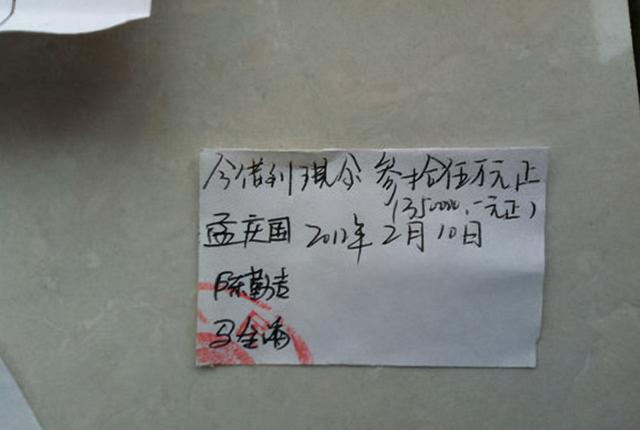 今借到琪尔叁拾伍万元正
(350000.-元正)
孟庆国 2012年2月10日
陈勤吉
马全